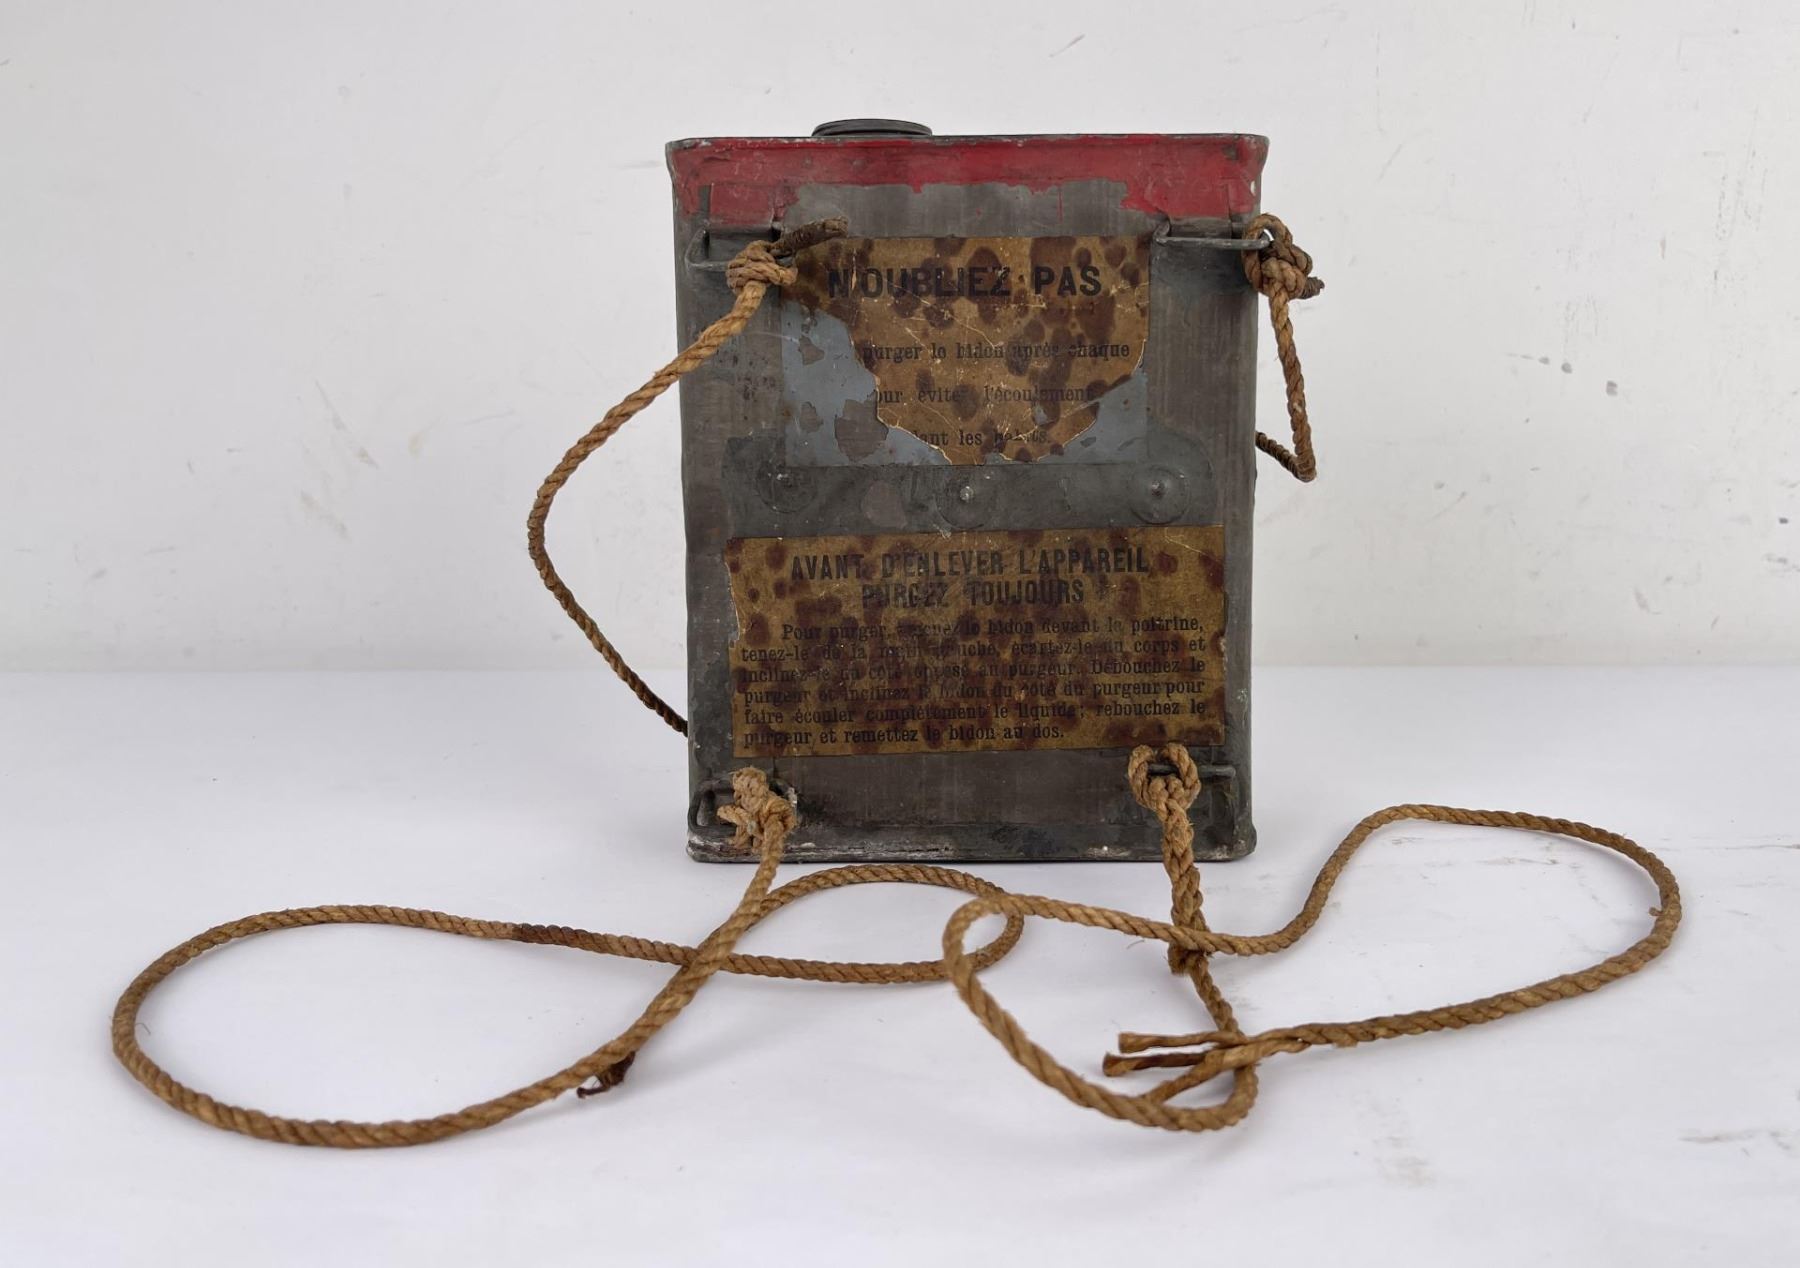 N'OUBLIEZ PAS
purger le bidon après chaque
éviter l'écoulement
les habits.
AVANT D'ENLEVER L'APPAREIL
PURGEZ TOUJOURS
Pour purger, le bidon devant la poitrine,
tenez-le de la main gauche, écartez-le du corps et
inclinez-le du côté opposé au purgeur. Débouchez le
purgeur et inclinez le bidon du côté du purgeur pour
faire écouler complètement le liquide; rebouchez le
purgeur et remettez le bidon au dos.